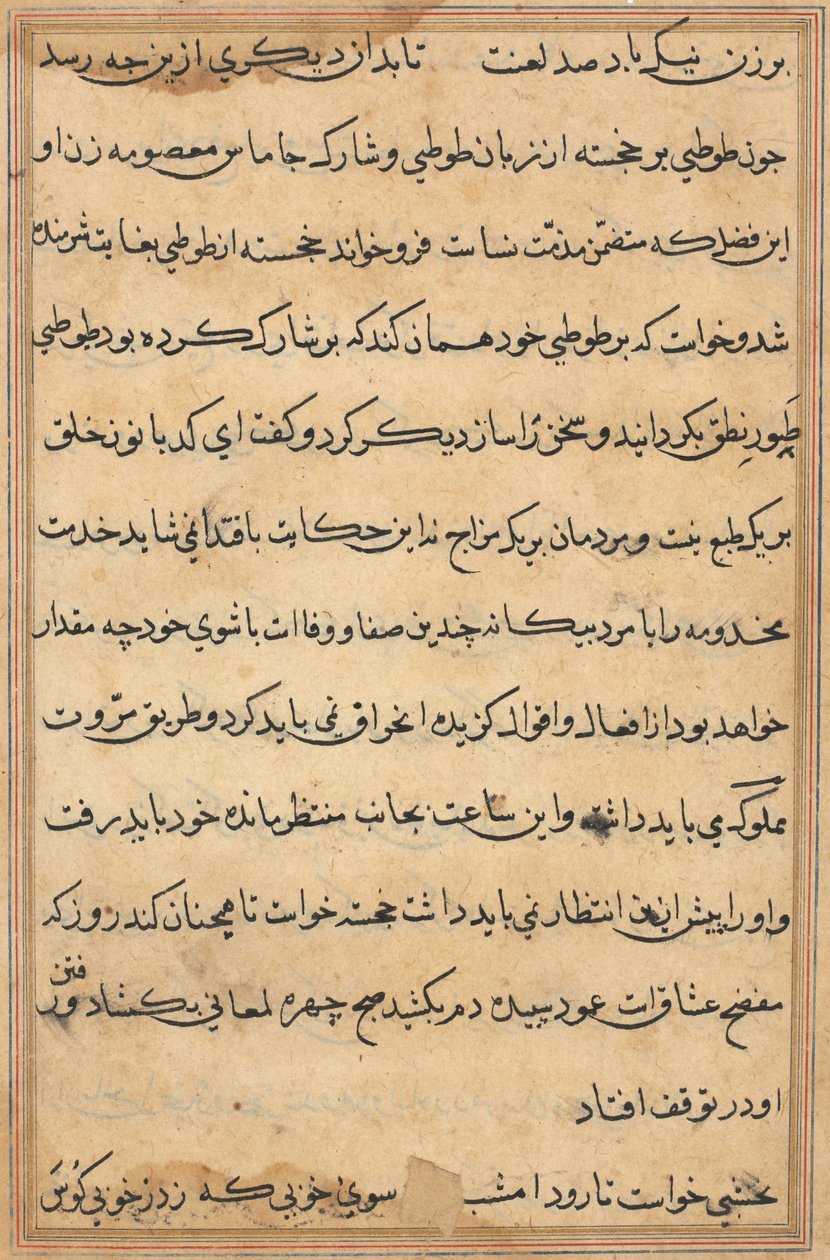 بر زن نیک باد صد لعنت تا بدان دیکری ازین جه رسد
جون طوطی بر خجسته از زبان طوطی و شارک جاماس معصومه زن او
این فضل که متضمّن مذمّت نساست فرو خواند خجسته از طوطی بغایت شرمنده
شد و خواست که بر طوطی خود همان کند که بر شارک کرده بود طوطی
طَیور نِطق بکردانید و سخن را ساز دیکر کرد و کفت ای کدبانو زن خلق
بر یک طبع ینست و مردمان بر یک مزاج نه این حکایت باقتدا نمی شاید خدمت
مخدومه را با مرد بیکانه چندین صفا و وفاات با شوی خود چه مقدار
خواهد بود از افعال و اقوال کزیده انحراق نمی باید کرد و طریق مرّوت
مملوک می باید داشت و این ساعت بجانب منتظر مانده خود باید رفت
و او را پیش ازین انتظار نمی باید داشت خجسته خواست تا همچنان کند روز که
مفضح عشاق است عمود سپیده دم بکشید صبح چهره لمعانی بکشاد و رفتن
او در توقف افتاد
نخشبی خواست تا رود امشب سوئ خوبی که زد ز خوبی کُوسَ